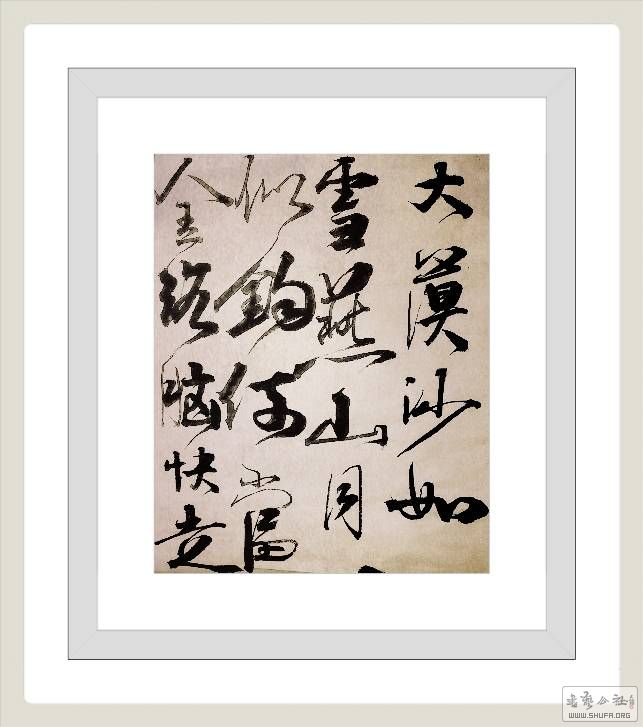 大漠沙如
雪燕山月
似鈎何當
金絡脑快走
書藝公社
WWW.SHUFA.ORG